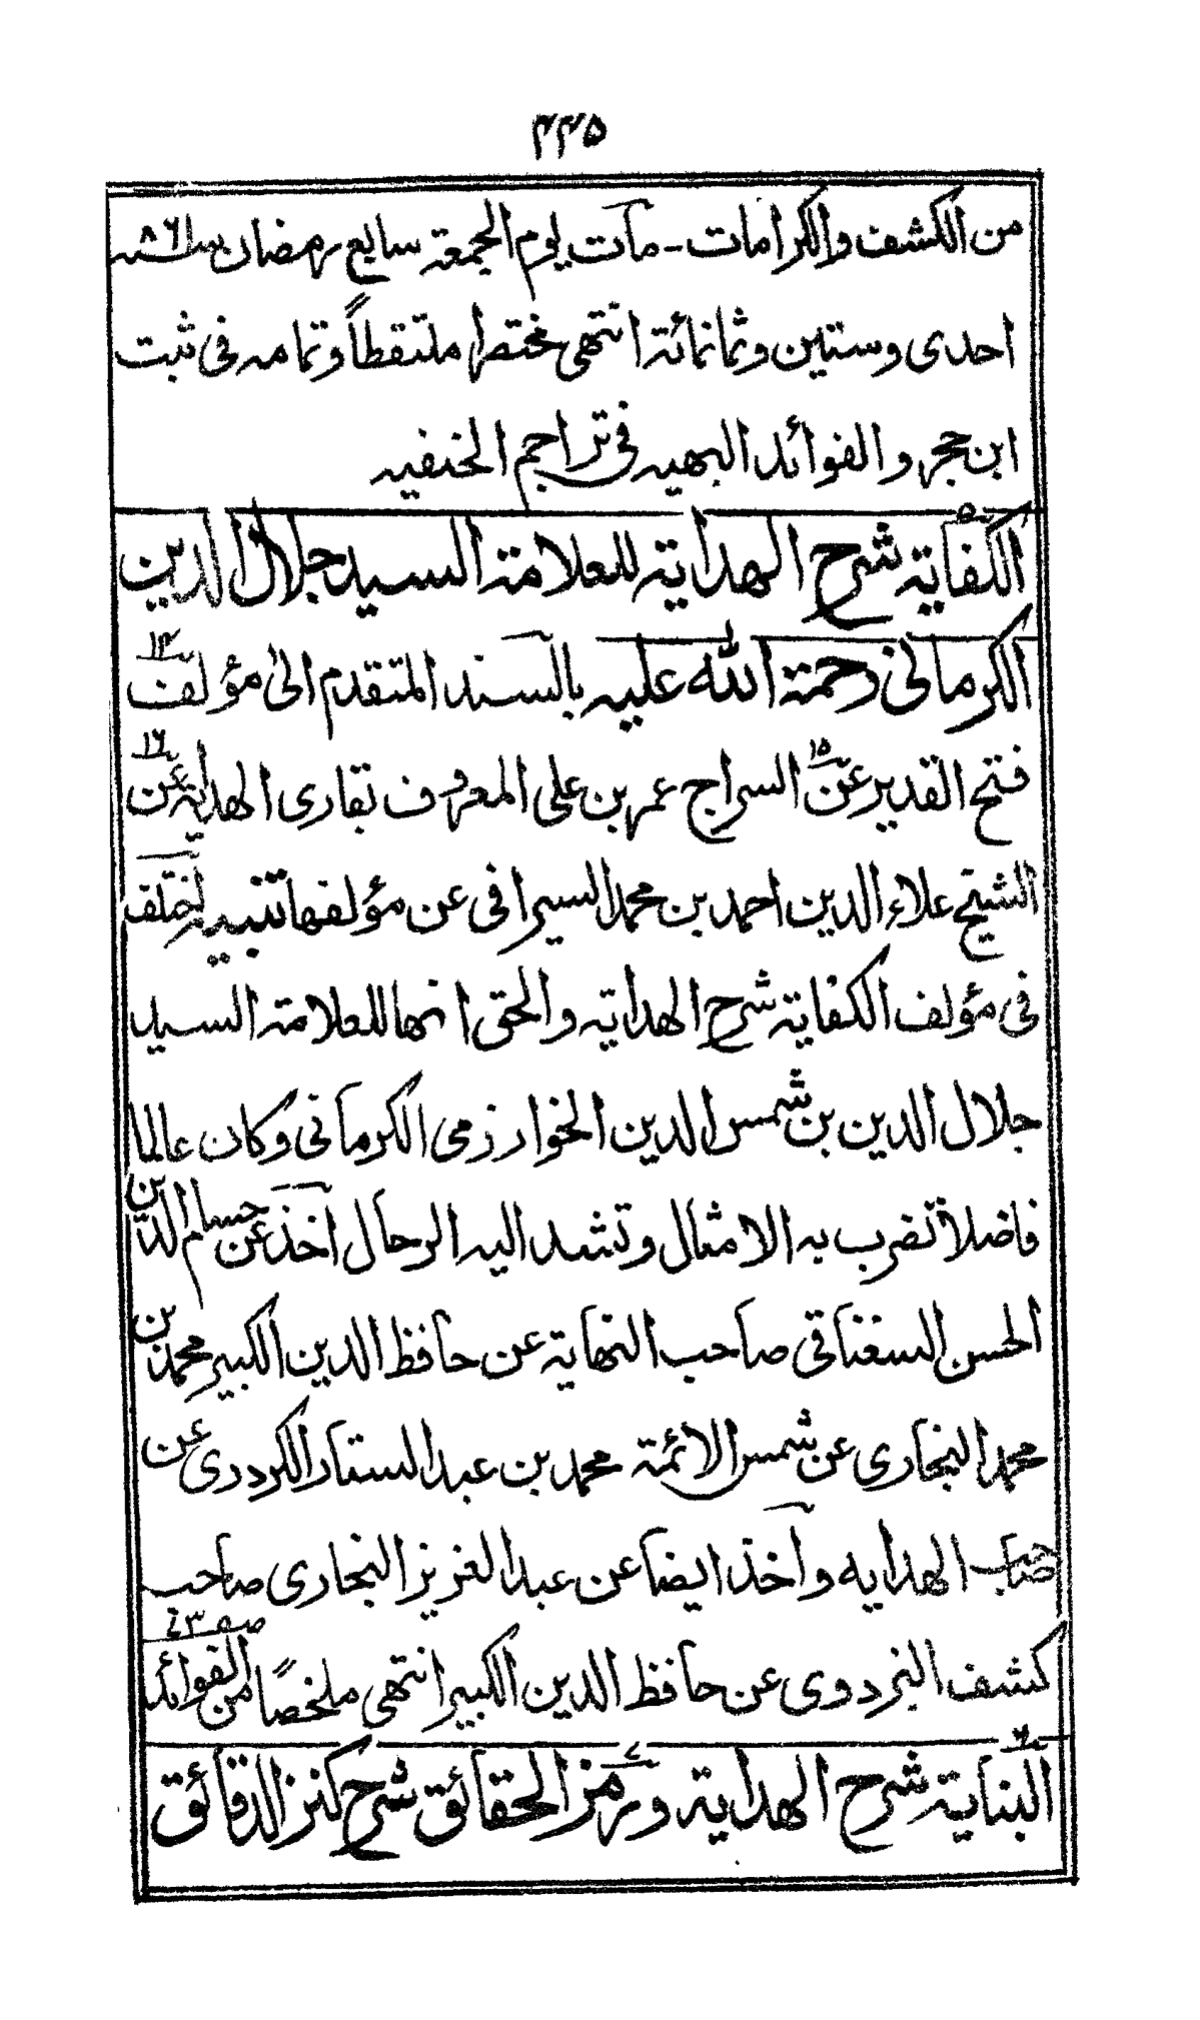 ۲۲۵
من الكشف والكرامات - مات يوم الجمعة سابع رمضان سنة ٨٦١
احدى وستين وثمانمائة انتهى مختصرا ملتقطاً وتمامه فى ثبت
ابن حجر والفوائد البهيه فى تراجم الحنفيه
٥ الكفاية شرح الهداية للعلامة السيد جلال الدين
الكرمانى رحمة الله عليه بالسند المتقدم الى مؤلف ١٤
فتح القدير عن ١٥ السراج عمر بن على المعروف بقارى الهداية عن ١٦
الشيخ علاء الدين احمد بن محمد السيرافى عن مؤلفها تنبيه اختلف
فى مؤلف الكفاية شرح الهداية والحق انها للعلامة السيد
جلال الدين بن شمس الدين الخوارزمى الكرمانى وكان عالما
فاضلا تضرب به الامثال وتشد اليه الرحال اخذ عن حسام الدين
الحسن السغناقى صاحب النهاية عن حافظ الدين الكبير محمد بن
محمد البخارى عن شمس الائمة محمد بن عبد الستار الكردرى عن
صاحب الهدايه وأخذ ايضا عن عبد العزيز البخارى صاحب
كشف البزدوى عن حافظ الدين الكبير انتهى ملخصًا من الفوائد
٦ البناية شرح الهداية ٧ ورمز الحقائق شرح كنز الدقائق